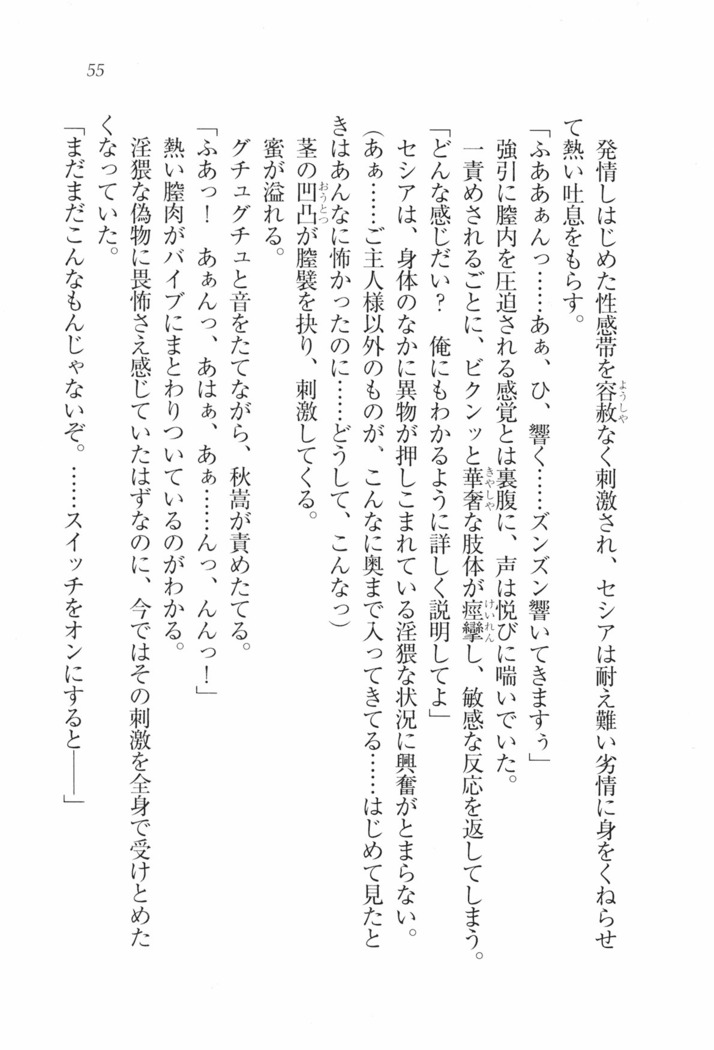 55
発情しはじめた性感帯を容赦なく刺激され、セシアは耐え難い劣情に身をくねらせ
て熱い吐息をもらす。
「ふああぁんっ……あぁ、ひ、響く……ズンズン響いてきますぅ」
強引に膣内を圧迫される感覚とは裏腹に、声は悦びに喘いでいた。
一責めされるごとに、ビクンッと華奢な肢体が痙攣し、敏感な反応を返してしまう。
「どんな感じだい？　俺にもわかるように詳しく説明してよ」
セシアは、身体のなかに異物が押しこまれている淫猥な状況に興奮がとまらない。
(あぁ……ご主人様以外のものが、こんなに奥まで入ってきてる……はじめて見たと
きはあんなに怖かったのに……どうして、こんなっ)
茎の凹凸が膣襞を抉り、刺激してくる。
蜜が溢れる。
グチュグチュと音をたてながら、秋嵩が責めたてる。
「ふあっ！　あぁんっ、あはぁ、あぁ……んっ、んんっ！」
熱い膣肉がバイブにまとわりついているのがわかる。
淫猥な偽物に畏怖さえ感じていたはずなのに、今ではその刺激を全身で受けとめた
くなっていた。
「まだまだこんなもんじゃないぞ。……スイッチをオンにすると――」
ようしゃ
きゃしゃ
けいれん
おうとつ